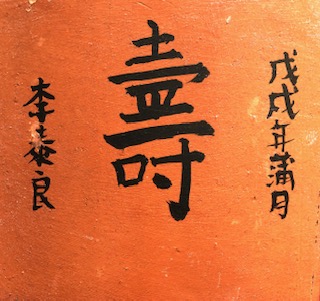 戊戌年蒲月
壽
李泰良